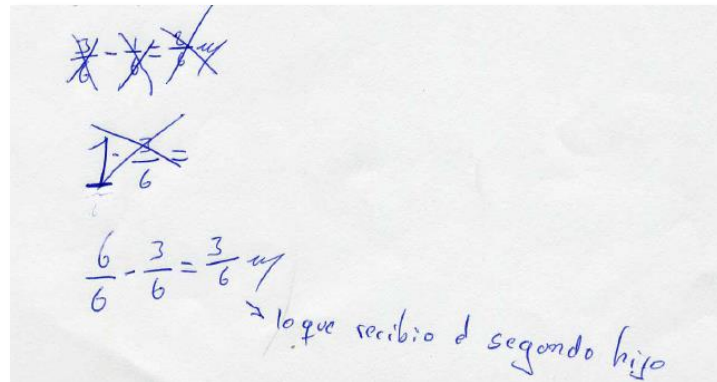 3/6 - 1/6 = 2/6
1 - 3/6 =
6/6 - 3/6 = 3/6
lo que recibio el segundo hijo